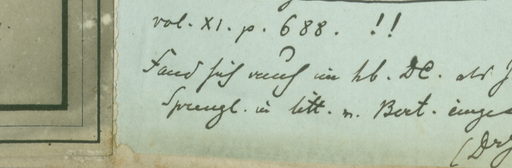 vol. XI. p. 688. !!
Fand sich auch im hb. DC. als
Sprengl. in litt. n. Bert.
(Dr